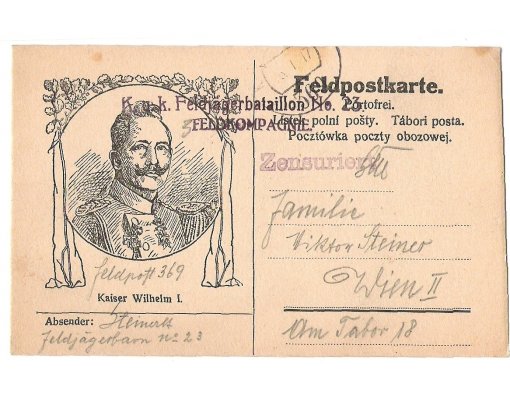 Feldpostkarte.
K. u. k. Feldjägerbataillon No. 23.
Portofrei.
FELDKOMPAGNIE.
Listek polní pošty. Tábori posta.
Pocztówka poczty obozowej.
Zensuriert
Familie
Viktor Steiner
Wien II
Am Tabor 18
Feldpost 369
Kaiser Wilhelm I.
Absender:
Feldjägerbaon No 23